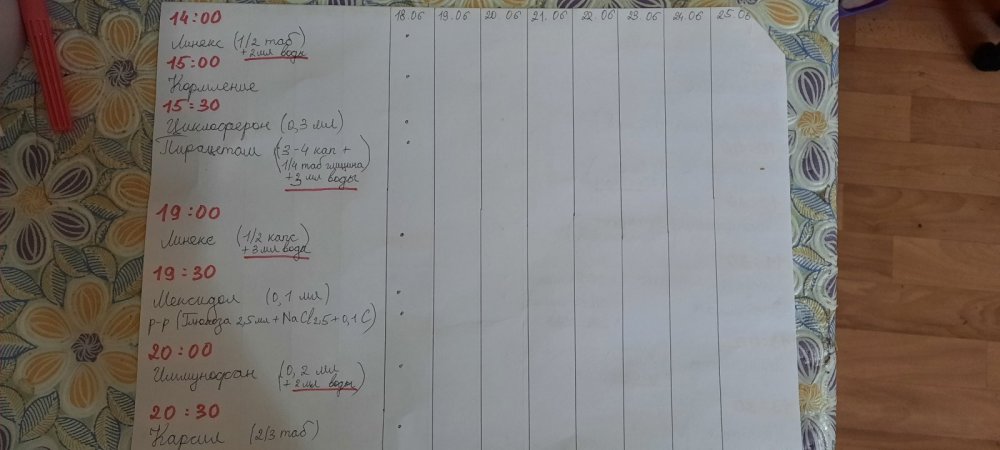 18.06 19.06 20.06 21.06 22.06 23.06 24.06 25.06
14:00
Линекс (1/2 таб
+2мл воды)
15:00
Кормление
15:30
Циклоферон (0,3 мл)
Пирацетам (3-4 кап +
1/4 таб глицина
+3 мл воды)
19:00
Линекс (1/2 капс
+3мл вода)
19:30
Мексидол (0,1 мл)
р-р (Глюкоза 2,5мл+NaCl 2,5+0,1 С)
20:00
Иммунофан (0,2 мл
+2мл воды)
20:30
Карсил (2/3 таб)